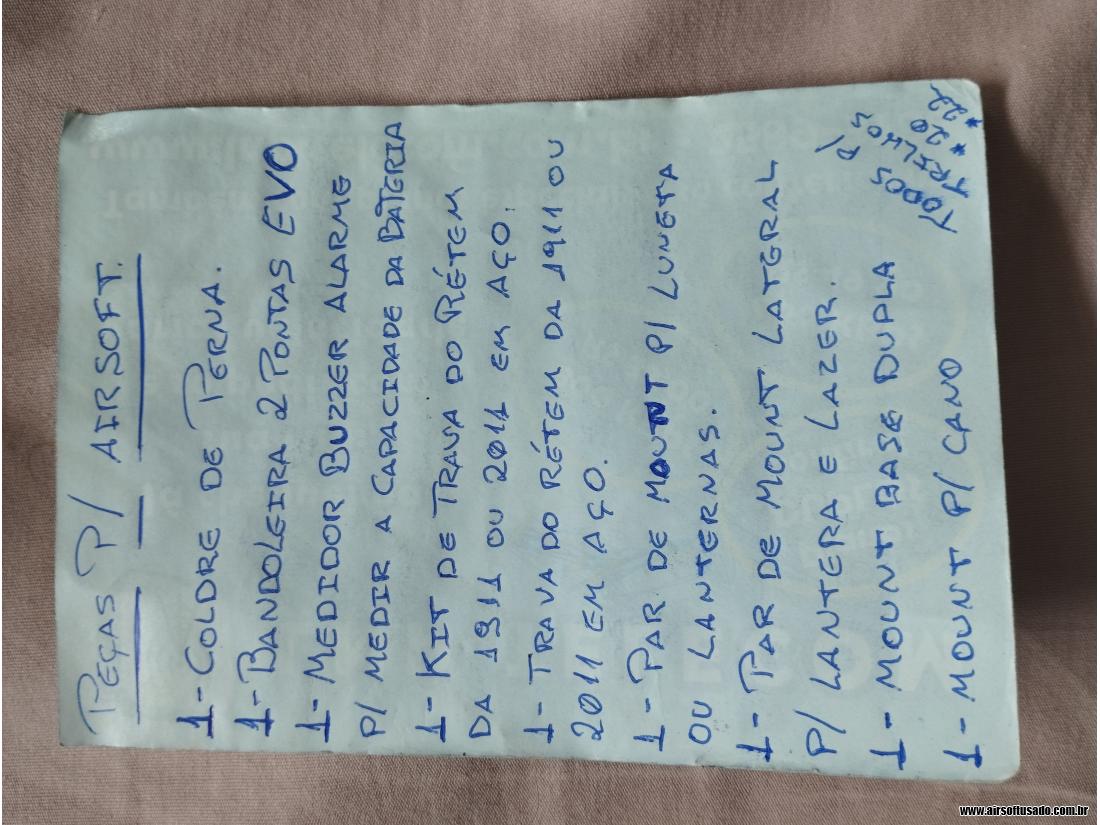 PEÇAS P/ AIRSOFT.
1 - COLDRE DE PERNA.
1 - BANDOLEIRA 2 PONTAS EVO
1 - MEDIDOR BUZZER ALARME
P/ MEDIR A CAPACIDADE DA BATERIA
1 - KIT DE TRAVA DO RÉTEM
DA 1911 OU 2011 EM AÇO.
1 - TRAVA DO RÉTEM DA 1911 OU
2011 EM AÇO.
1 - PAR DE MOUNT P/ LUNETA
OU LANTERNAS.
1 - PAR DE MOUNT LATERAL
P/ LANTERA E LAZER.
1 - MOUNT BASE DUPLA
1 - MOUNT P/ CANO
TODOS P/
TRILHOS
* 20
* 22
www.airsoftusado.com.br